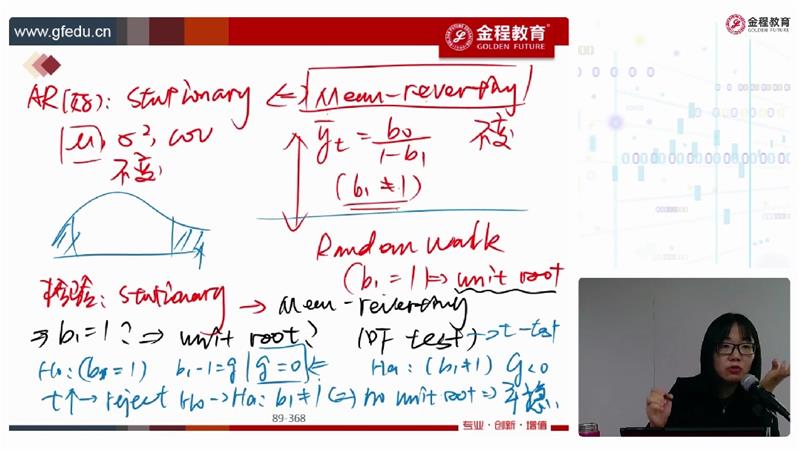 www.gfedu.cn
金程教育
GOLDEN FUTURE
金程教育
GOLDEN FUTURE
AR: stationary ⇔ mean-reverting
μ, σ², cov
不变
ȳt = b0 / 1-b1 不变
(b1 ≠ 1)
Random walk
(b1 = 1) ⇔ unit root
检验: stationary → mean-reverting
⇒ b1 = 1 ? ⇒ unit root? (DF test) → t-test
H0: (b1 = 1) b1-1=g | g=0 ⇐ Ha: (b1≠1) g<0
t↑→ reject H0 → Ha: b1≠1 ⇔ no unit root ⇒ 平稳.
89-368
专业·创新·增值